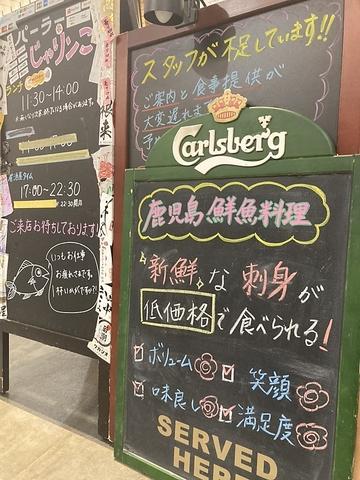 パーラー
じゃりンこ
ランチ
11:30~14:00
17:00~22:30
ご来店お待ちしております!
いつもお仕事
お疲れさまです。
スタッフが不足しています!!
ご案内と食事提供が
大変遅れま
Carlsberg
鹿児島鮮魚料理
新鮮な刺身が
低価格で食べられる!
ボリューム
笑顔
味良し
満足度
SERVED
HERE